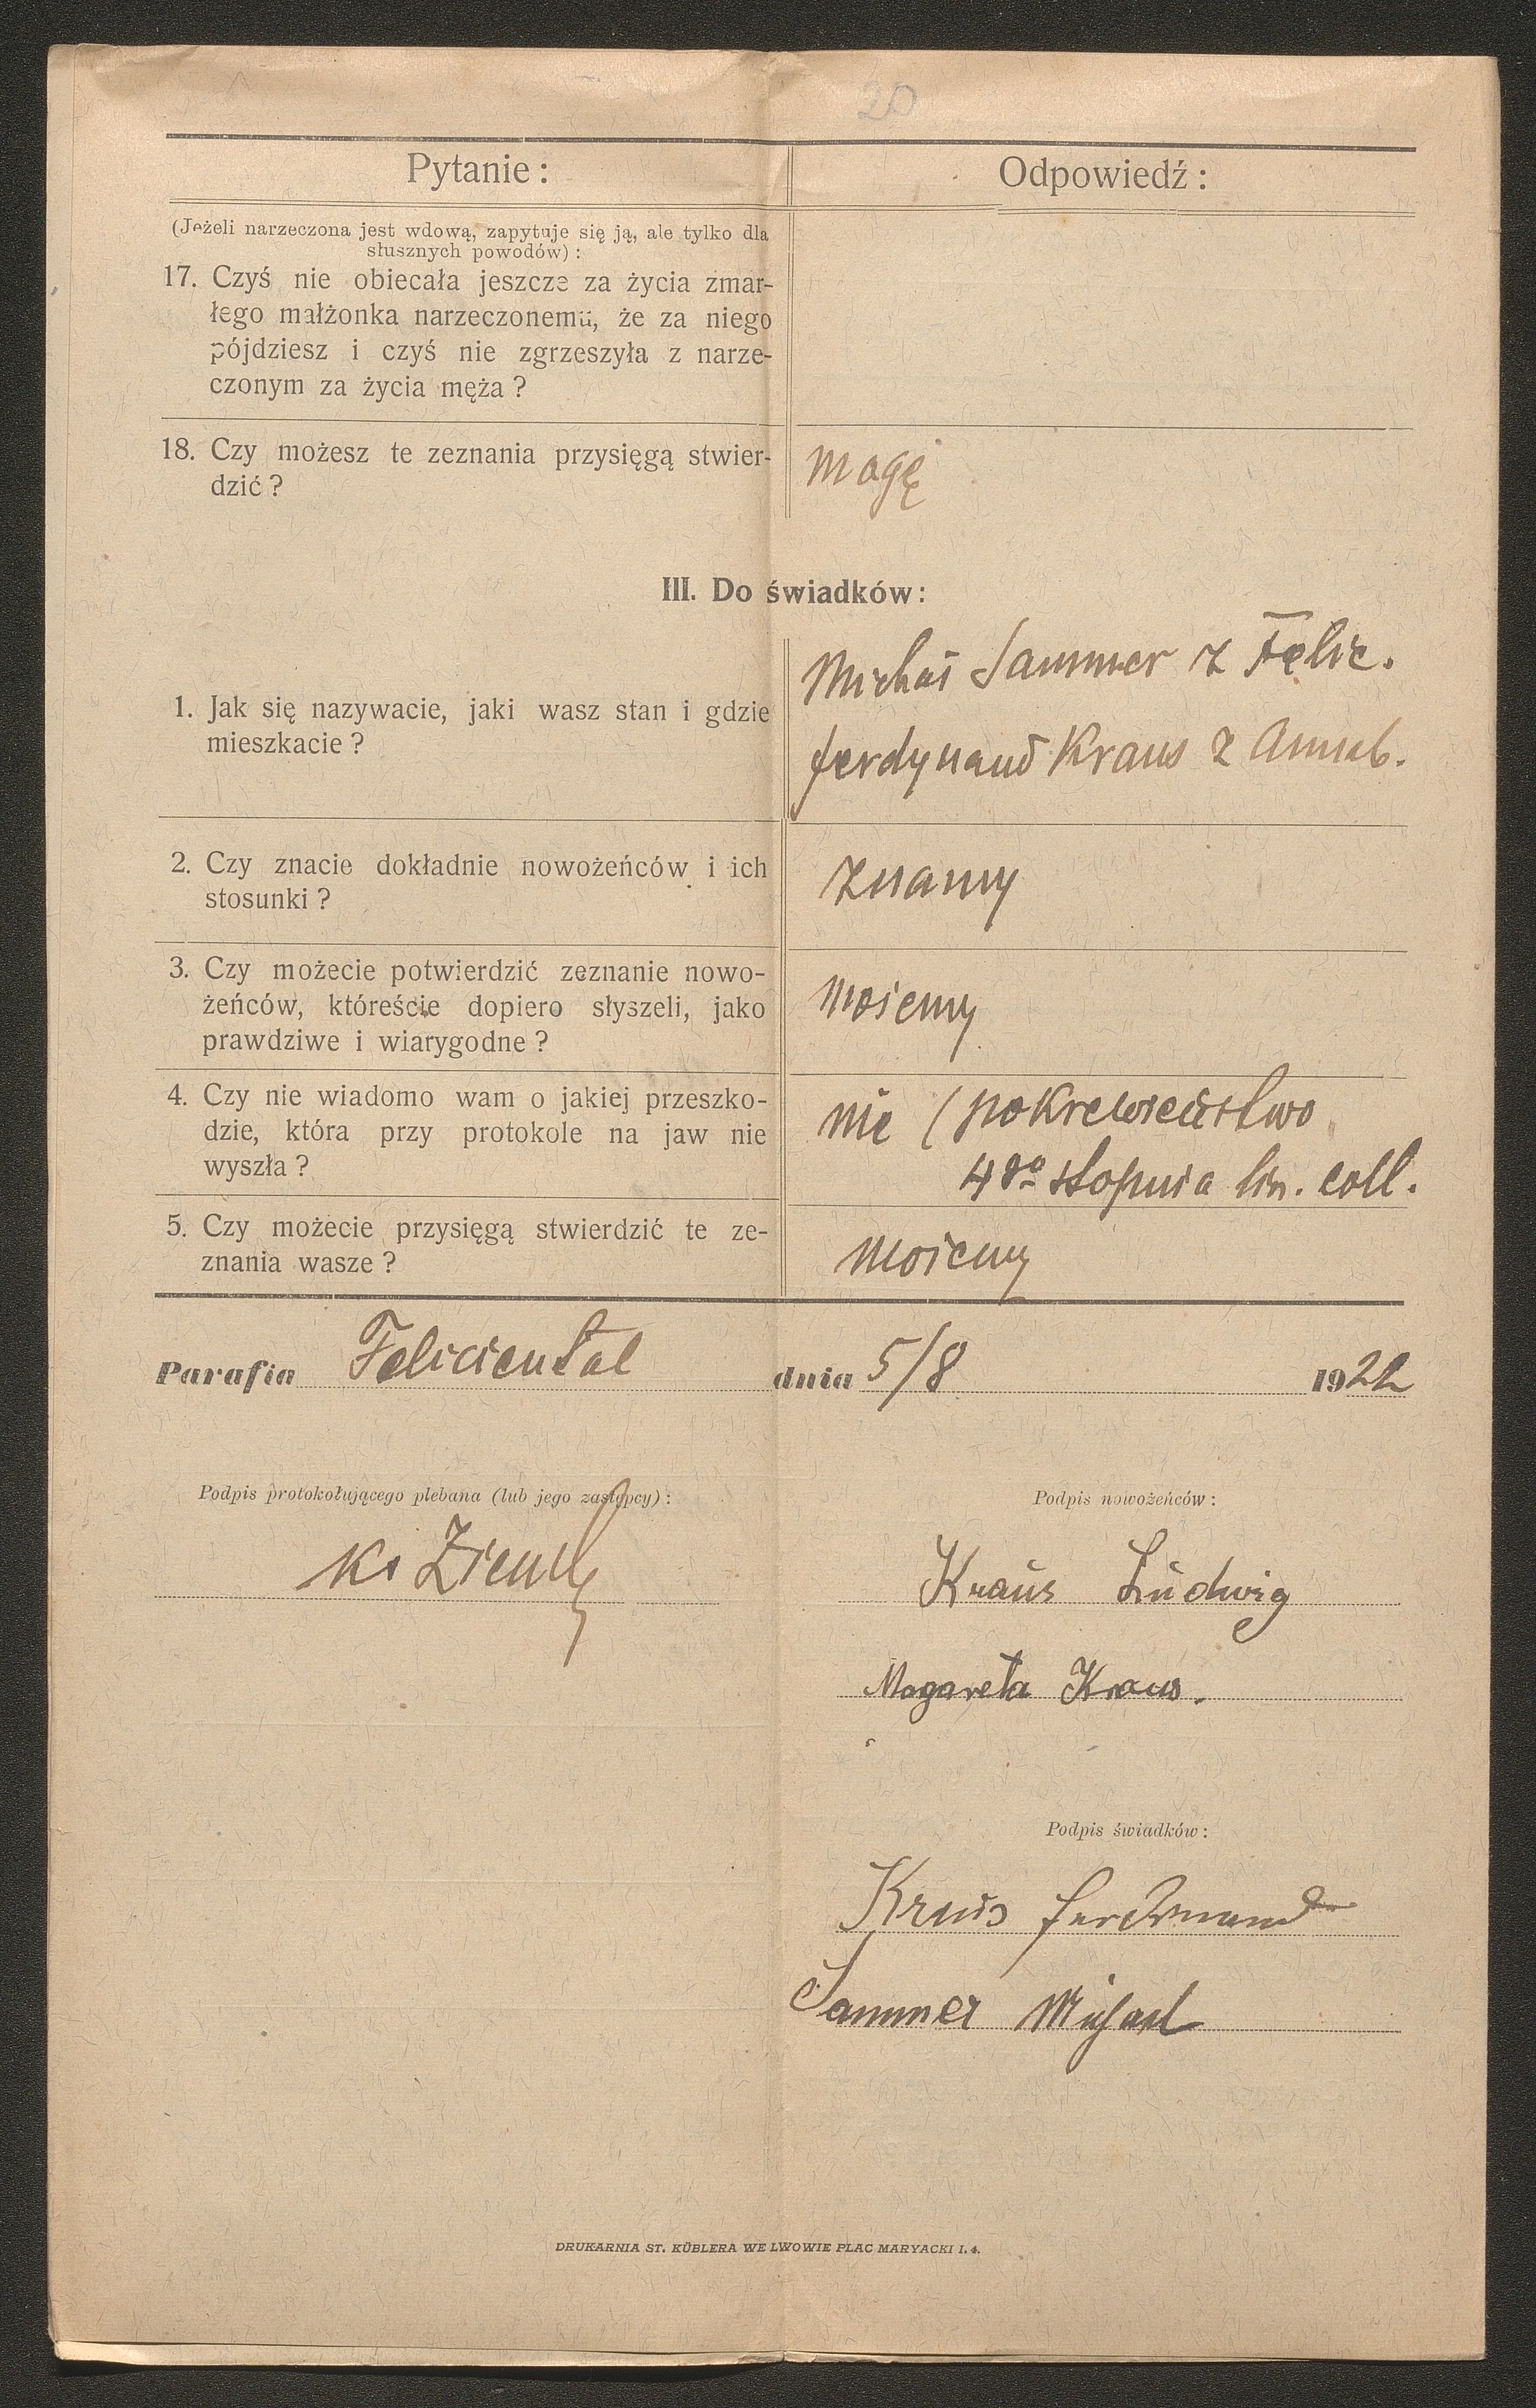 20
Pytanie :
Odpowiedź :
(Jeżeli narzeczona jest wdową, zapytuje się ją, ale tylko dla
słusznych powodów) :
17. Czyś nie obiecała jeszcze za życia zmar-
łego małżonka narzeczonemu, że za niego
pójdziesz i czyś nie zgrzeszyła z narze-
czonym za życia męża ?
18. Czy możesz te zeznania przysięgą stwier-
dzić ?
mogę
III. Do świadków :
1. Jak się nazywacie, jaki wasz stan i gdzie
mieszkacie ?
Michał Sammer z Felic.
Ferdynand Kraus z Annab.
2. Czy znacie dokładnie nowożeńców i ich
stosunki ?
znamy
3. Czy możecie potwierdzić zeznanie nowo-
żeńców, któreście dopiero słyszeli, jako
prawdziwe i wiarygodne ?
możemy
4. Czy nie wiadomo wam o jakiej przeszko-
dzie, która przy protokole na jaw nie
wyszła ?
nie (pokrewieństwo
4go stopnia lin. coll.
5. Czy możecie przysięgą stwierdzić te ze-
znania wasze ?
możemy
Parafia Feliciental dnia 5/8 1922
Podpis protokołującego plebana (lub jego zastępcy) :
Podpis nowożeńców :
Kraus Ludwig
Margareta Kraus.
Podpis świadków :
Kraus Ferdinand
Sammer Michael
DRUKARNIA ST. KÜBLERA WE LWOWIE PLAC MARYACKI l. 4.